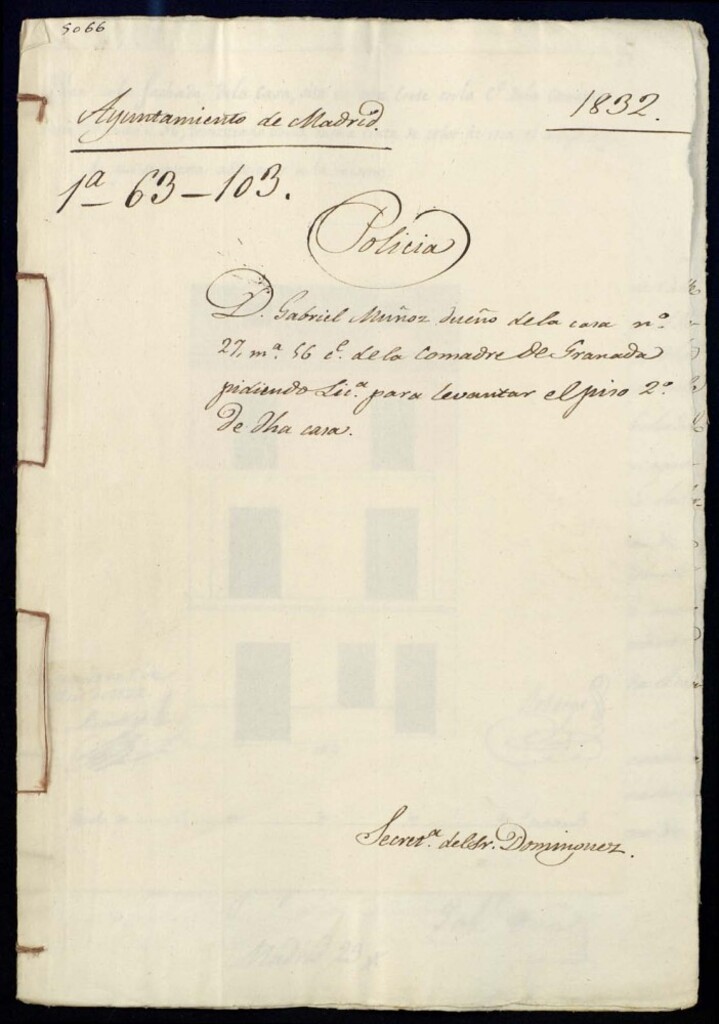 5066
Ayuntamiento de Madrid.
1832.
1ª 63-103.
Policia
D. Gabriel Muñoz dueño de la casa nº
27, mª. 56 cᵉ. de la Comadre de Granada
pidiendo Licª. para levantar el piso 2º.
de dha casa.
Secretª. del Sr. Dominguez.
Madrid 23